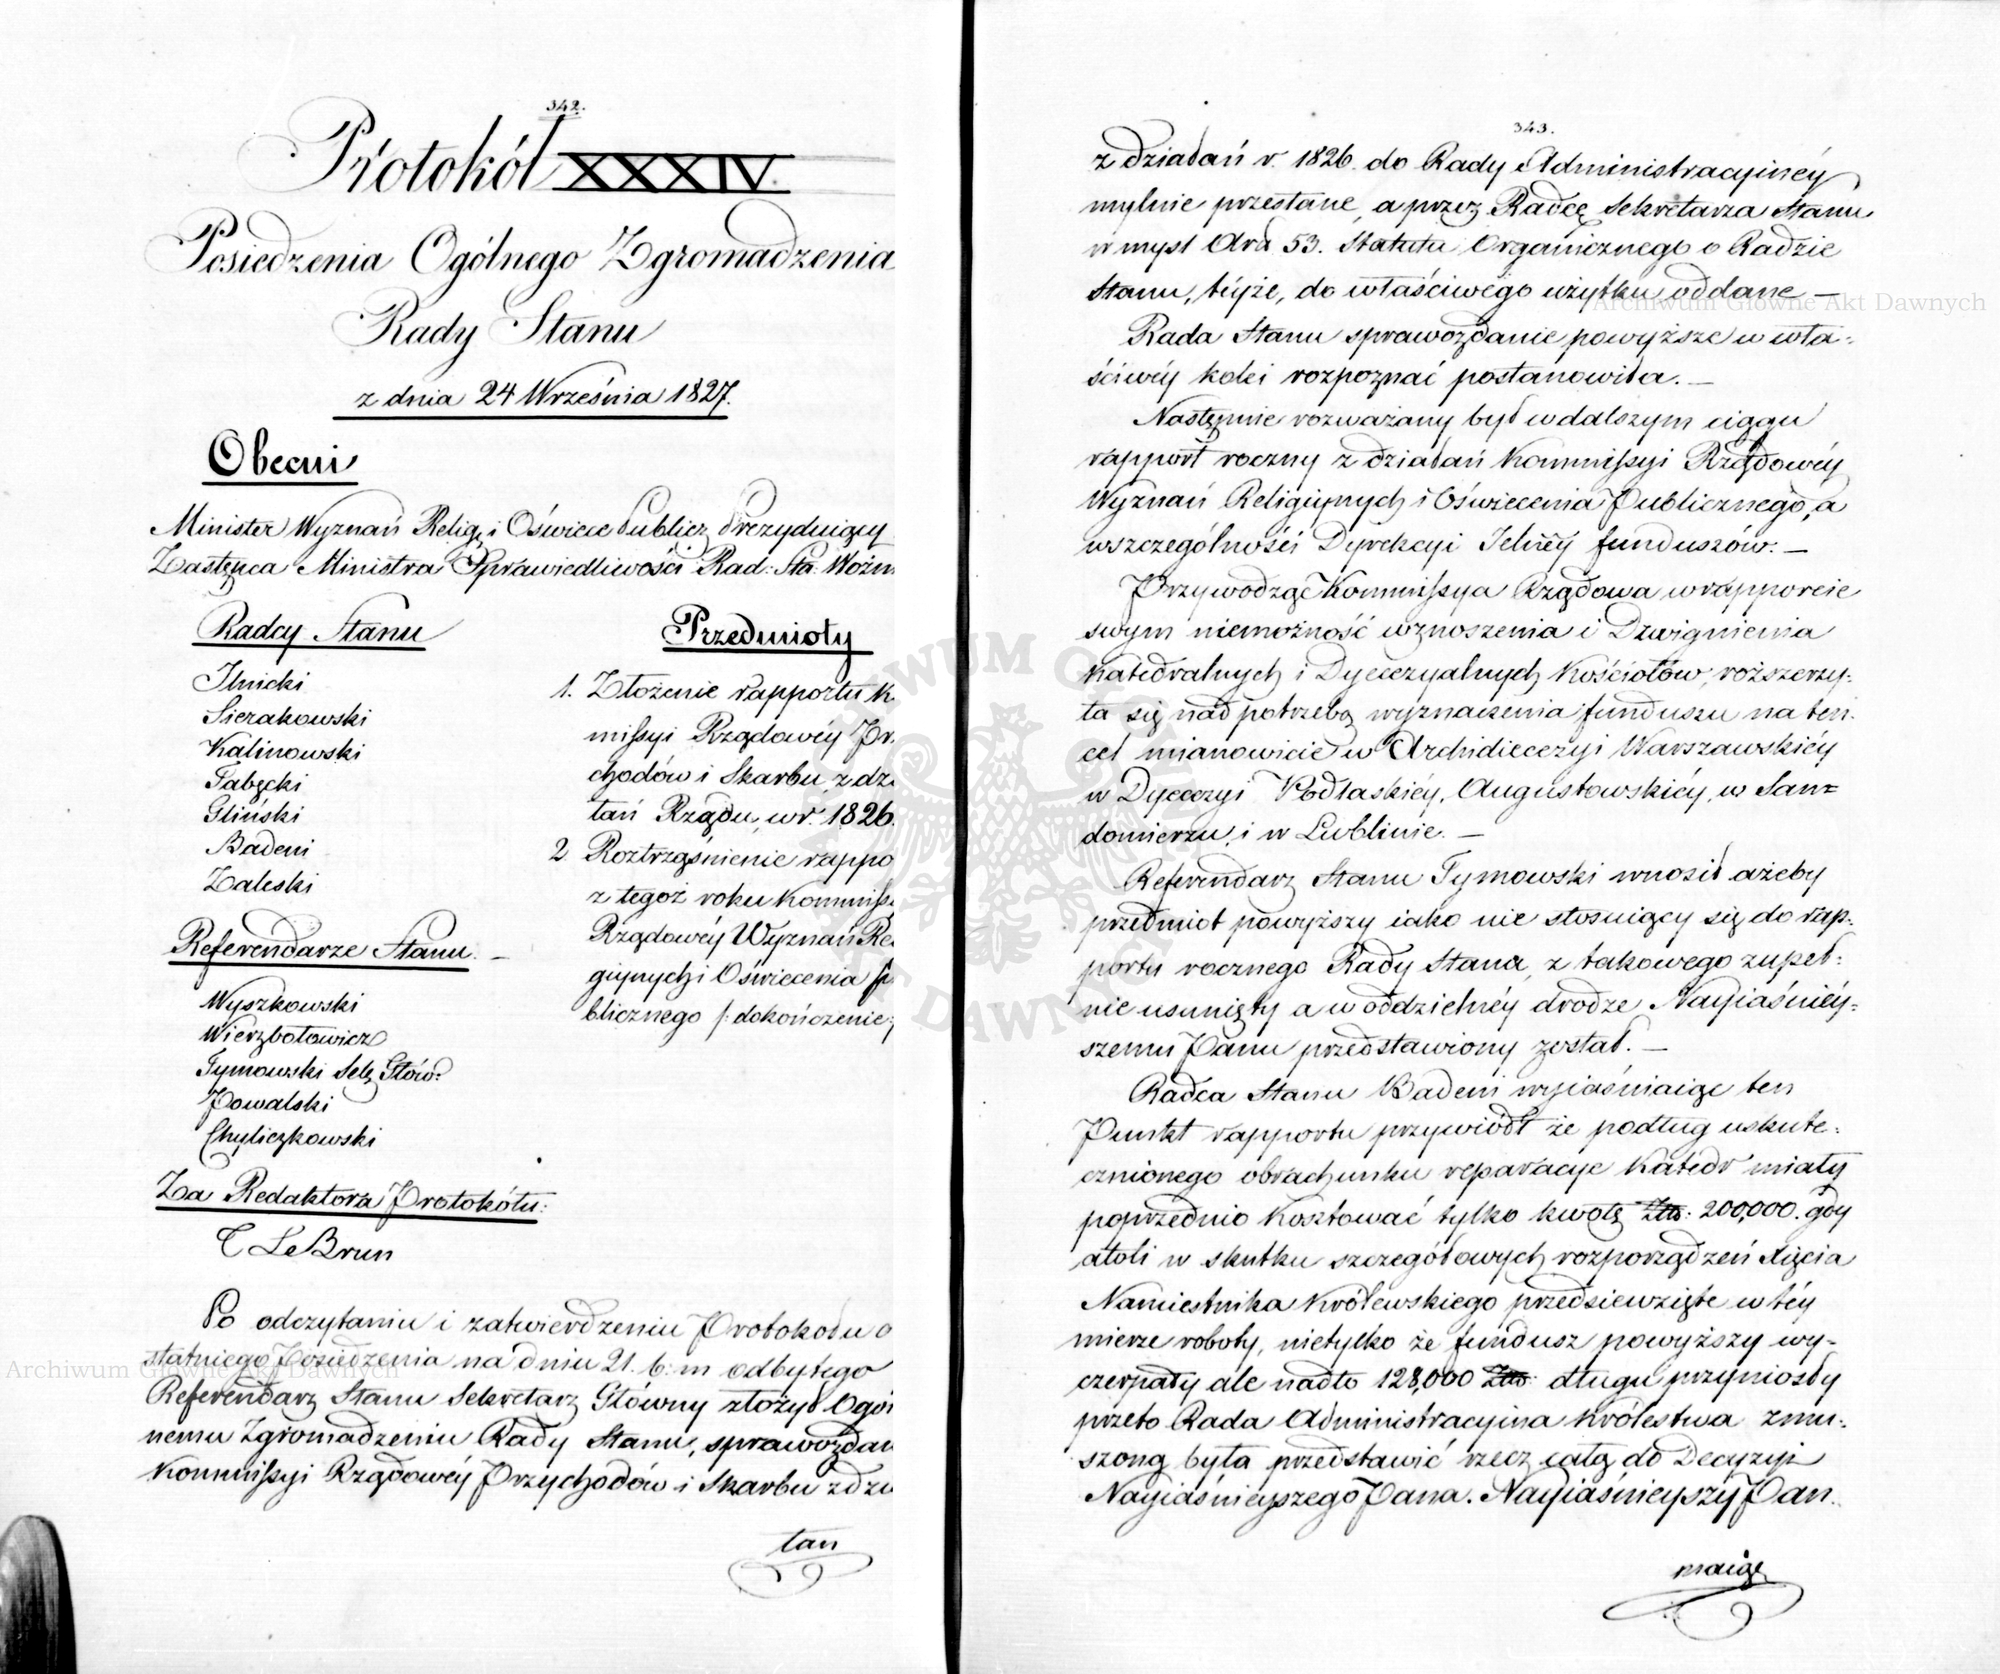 342.
Protokół XXXIV.
Posiedzenia Ogólnego Zgromadzenia
Rady Stanu
z dnia 24 Września 1827.
Obecni
Minister Wyznań Relig: i Oświece Publicz Prezyduiący
Zastępca Ministra Sprawiedliwości Rad: Sta: Woźn
Radcy Stanu
Ilnicki
Sierakowski
Kalinowski
Tabęcki
Gliński
Badeni
Zaleski
Referendarze Stanu. —
Wyszkowski
Wierzbołowicz
Tymowski Sek: Głów:
Powalski
Chyliczkowski
Za Redaktora Protokółu:
T LeBrun
Przedmioty
1. Złożenie rapportu K
missyi Rządowéy Pr
chodów i Skarbu, z dzi
łań Rządu, w r. 1826.
2 Roztrząśnienie rappo
z tegoż roku Kommiss
Rządowéy Wyznań Re
giynych i Oświecenia P
blicznego /: dokończenie:
Po odczytaniu i zatwierdzeniu Protokołu o
statniego Posiedzenia na dniu 21. b: m odbytego
Referendarz Stanu Sekretarz Główny złożył Ogól
nemu Zgromadzeniu Rady Stanu, sprawozdan
Kommissyi Rządowéy Przychodów i Skarbu z dzia
łań
343.
z działań r. 1826. do Rady Administracyinéy
mylnie przesłane, a przez Radcę Sekretarza Stanu
w myśl Art 53. Statutu Organicznego o Radzie
Stanu, téyże, do właściwego użytku oddane —
Rada Stanu sprawozdanie powyższe w wła:
ściwéy kolei rozpoznać postanowiła. —
Następnie rozważany był w dalszym ciągu
rapport roczny z działań Kommissyi Rządowéy
Wyznań Religiynych i Oświecenia Publicznego, a
wszczególności Dyrekcyi Jelnéy funduszów. —
Przywodząc Kommissya Rządowa w rapporcie
swym niemożność wznoszenia i Dzwignienia
Katedralnych i Dyecezyalnych Kościołów, rozszerzy:
ła się nad potrzebą wyznaczenia funduszu na ten
cel mianowicie w Archidiecezyi Warszawskiéy
w Dyecezyi Podlaskiéy, Augustowskiéy, w San=
domierzu, i w Lublinie. —
Referendarz Stanu Tymowski wnosił ażeby
przedmiot powyższy iako nie stosuiący się do rap:
portu rocznego Rady Stanu, z takowego zupeł:
nie usunięty a w oddzielnéy drodze Nayiaśniéy:
szemu Panu przedstawiony został. —
Radca Stanu Badeni wyiaśniaiąc ten
Punkt rapportu przywiódł że podług uskute:
cznionego obrachunku reparacye Katedr miały
poprzednio kosztować tylko kwotę Złt: 200,000. gdy
atoli w skutku szczegółowych rozporządzeń Xięcia
Namiestnika Królewskiego przedsiewzięte w téy
mierze roboty, nietylko że fundusz powyższy wy=
czerpały ale nadto 128,000 Złt: długu przyniosły
przeto Rada Administracyina Królestwa zmu:
szoną była przedstawić rzecz całą do Decyzyi
Nayiaśnieyszego Pana. Nayiaśnieyszy Pan.
maiąc
Archiwum Główne Akt Dawnych
Archiwum Główne Akt Dawnych